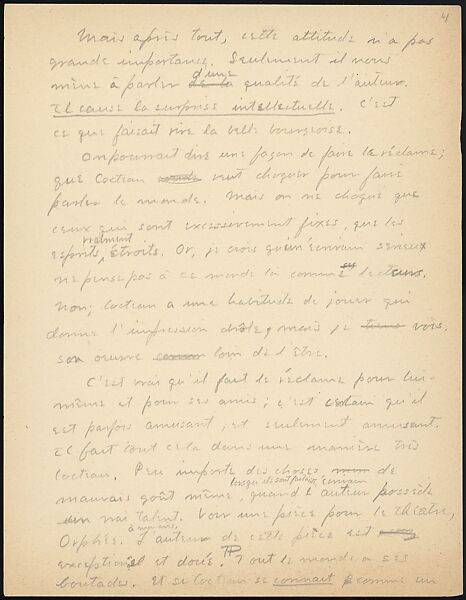 4
Mais après tout, cette attitude n'a pas
grande importance. Seulement il nous
d'une
même à parler de la qualité de l'auteur.
Il cause la surprise intellectuelle. C'est
ce que faisait rire la belle bourgeoise.
On pourrait dire une façon de faire la réclame;
que Cocteau veut choquer pour faire
parler le monde. Mais on ne choque que
ceux qui sont excessivement fixes, que les
vraiment
esprits étroits. Or, je crois qu'un écrivain sérieux
ses
ne pense pas à ce monde là comme lecteurs.
Non; Cocteau a une habitude de jouer qui
donne l'impression drôle; mais je vois
son oeuvre loin de l'être.
C'est vrai qu'il fait le réclame pour lui-
même et pour ses amis; c'est certain qu'il
est parfois amusant, et seulement amusant.
Il fait tout cela dans une manière très
Cocteau. Peu importe des choses de
lorsqu'ils sont faits
mauvais goût même, quand l'auteur possède
un vrai talent. Voir une pièce pour le théâtre,
à mon avis,
Orphée. L'auteur de cette pièce est
exceptionnel et doué. Tout le monde a ses
boutades. Et si Cocteau se connait comme un